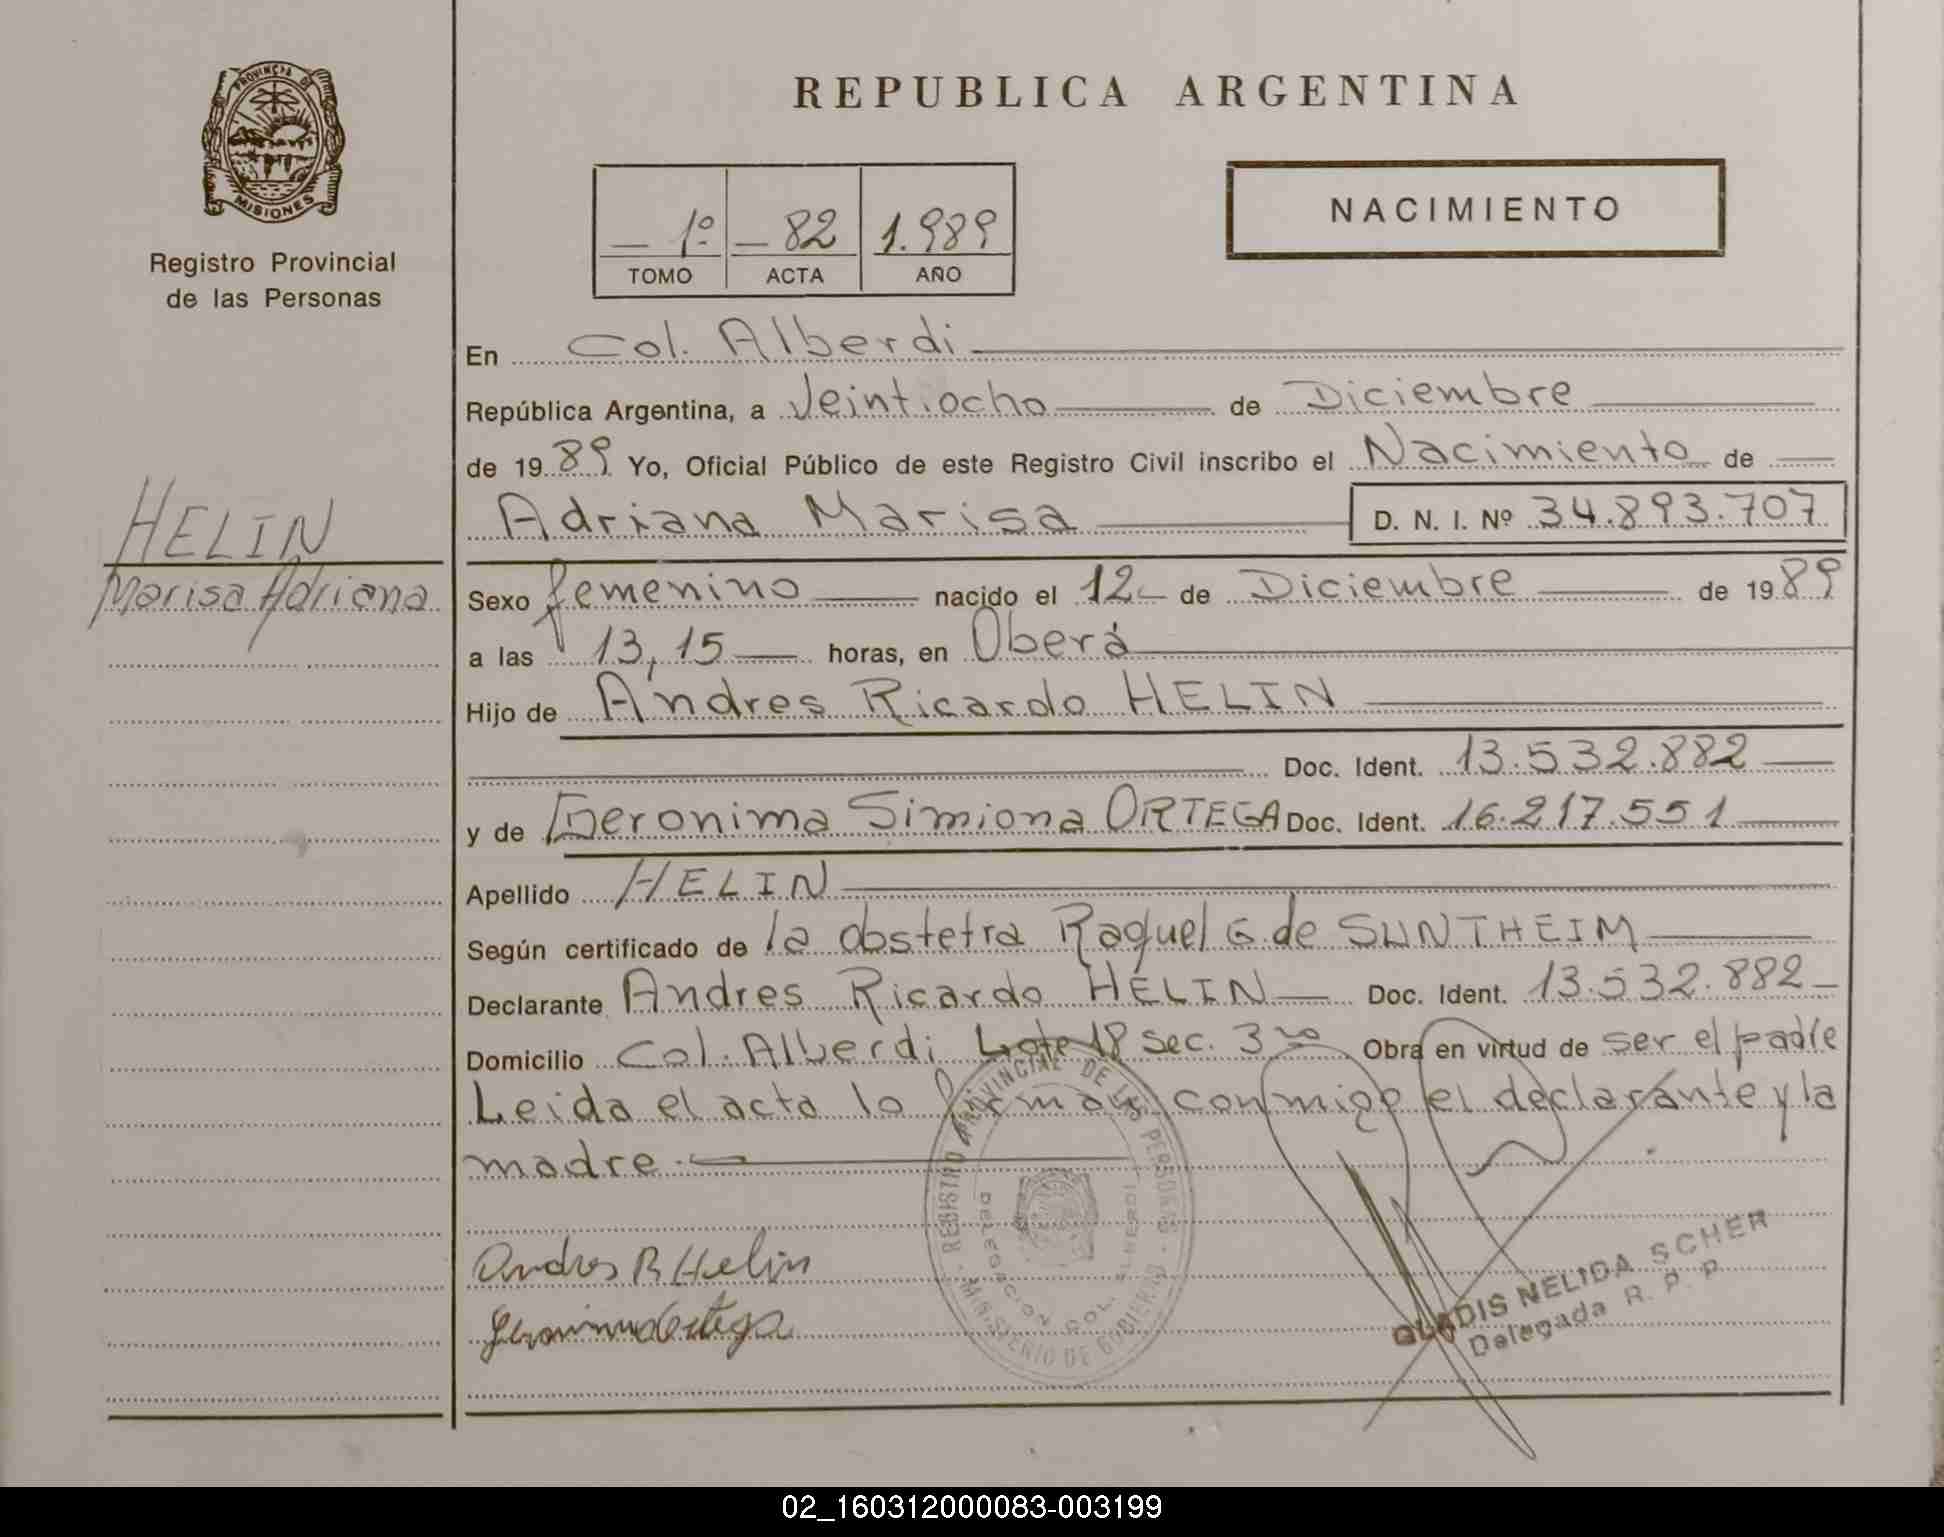 PROVINCIA DE
MISIONES
Registro Provincial
de las Personas
HELIN
Marisa Adriana
REPUBLICA ARGENTINA
— 1º — 82 1.989
TOMO ACTA AÑO
NACIMIENTO
En Col. Alberdi
República Argentina, a Veintiocho de Diciembre
de 1989 Yo, Oficial Público de este Registro Civil inscribo el Nacimiento de
Adriana Marisa D. N. I. Nº 34.893.707
Sexo femenino nacido el 12 de Diciembre de 1989
a las 13,15 horas, en Oberá
Hijo de Andres Ricardo HELIN
Doc. Ident. 13.532.882
y de Geronima Simiona ORTEGA Doc. Ident. 16.217.551
Apellido HELIN
Según certificado de la obstetra Raquel G de SUNTHEIM
Declarante Andres Ricardo HELIN Doc. Ident. 13.532.882
Domicilio Col. Alberdi Lote 18 sec. 3ra Obra en virtud de ser el padre
Leida el acta lo firman conmigo el declarante y la
madre.
Andres R Helin
Geronima Ortega
REGISTRO PROVINCIAL DE LAS PERSONAS
DELEGACION COL. ALBERDI
MINISTERIO DE GOBIERNO
GLADIS NELIDA SCHER
Delegada R. P. P.
02_160312000083-003199